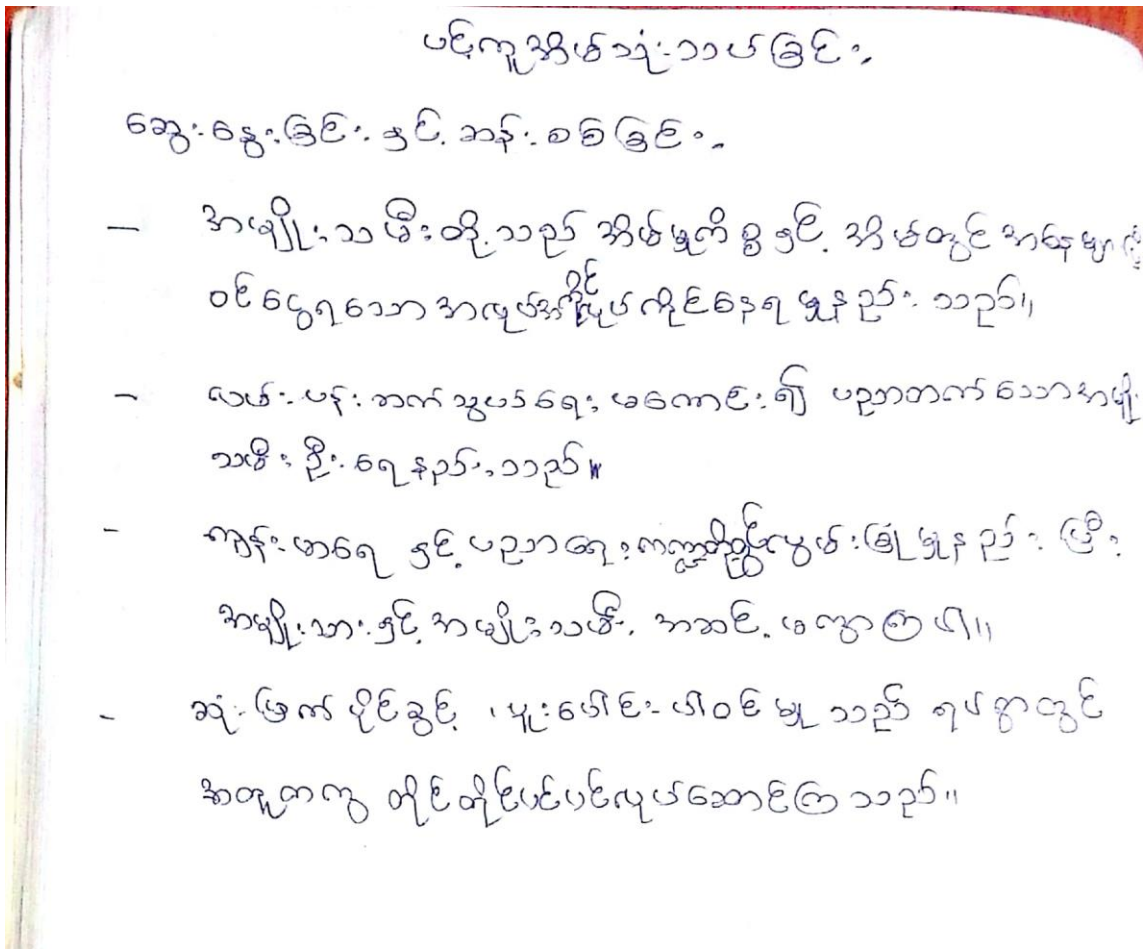 ပင့်ကူအိမ်သုံးသပ်ခြင်း
ဆွေးနွေးခြင်းနှင့် ဆန်းစစ်ခြင်း
- အမျိုးသမီးတို့သည် အိမ်မှုကိစ္စနှင့် အိမ်တွင်အနေများ၍
ဝင်ငွေရသောအလုပ်အကိုင်လုပ်ကိုင်နေရမှုနည်းသည်။
- လမ်းပန်းဆက်သွယ်ရေး မကောင်း၍ ပညာတတ်သောအမျိုး
သမီးဦးရေနည်းသည်။
- ကျန်းမာရေ နှင့် ပညာရေးကဏ္ဍတို့တွင်လွှမ်းခြုံမှုနည်းပြီး
အမျိုးသားနှင့် အမျိုးသမီး အဆင့် မကွာကြပါ။
- ဆုံးဖြတ်ပိုင်ခွင့် ၊ပူးပေါင်းပါဝင်မှုသည် ရပ်ရွာတွင်
အတူတကွ တိုင်တိုင်ပင်ပင်လုပ်ဆောင်ကြသည်။